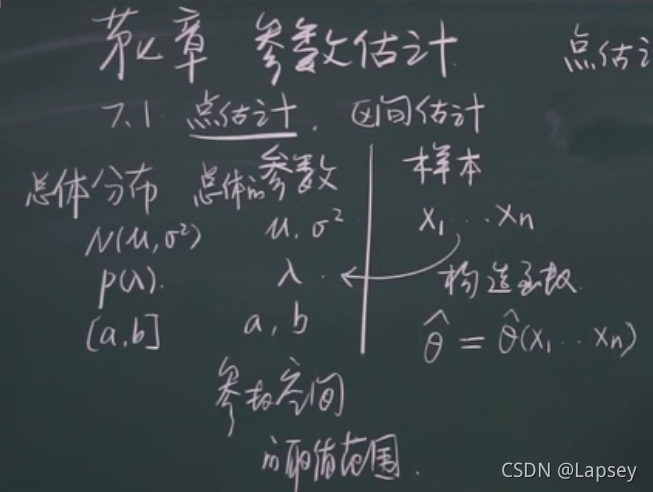 第七章 参数估计
点估计
7.1 点估计. 区间估计
总体分布 总体的参数 样本
N(μ,σ²) μ,σ² X₁, ... Xn
p(λ). λ. 构造函数.
[a,b] a,b θ̂ = θ̂(X₁ ... Xn)
参数空间
的取值范围.
CSDN @Lapsey